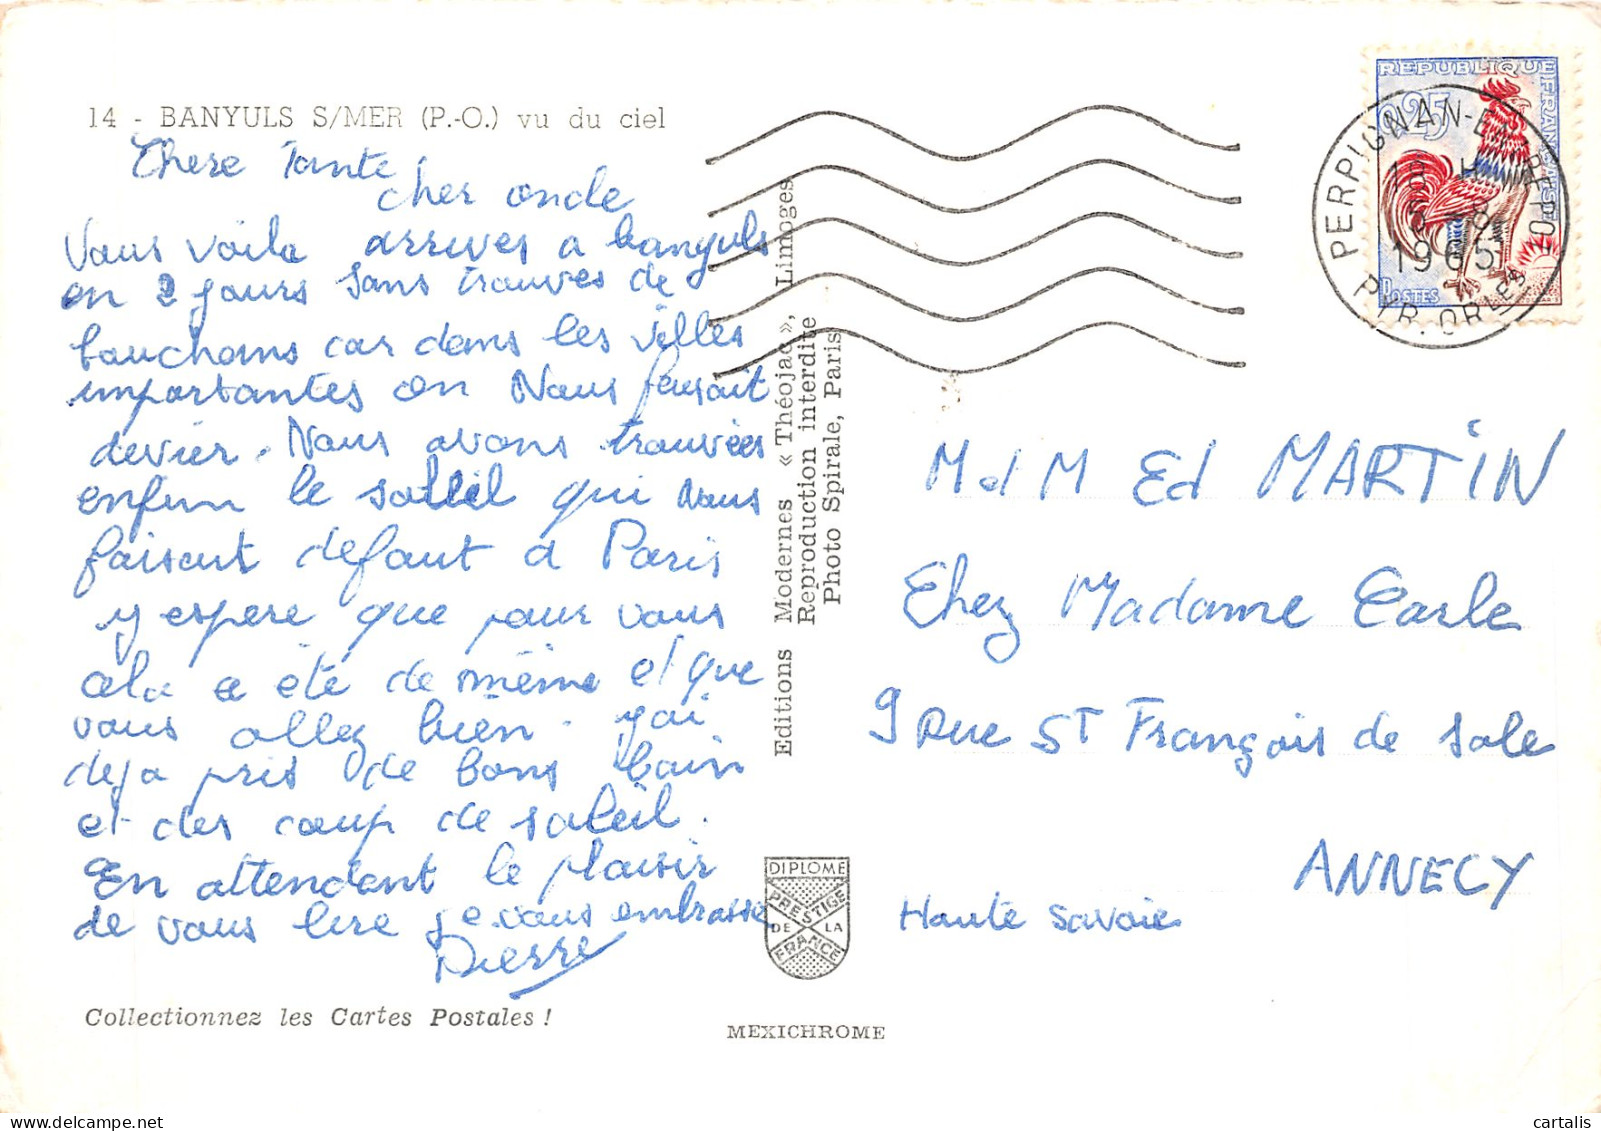 14 - BANYULS S/MER (P.-O.) vu du ciel
Chere Tante
cher oncle
Vous voila arrives a banyuls
en 2 jours sans trouves de
bouchons car dans les villes
importantes on Nous faisait
devier. Nous avons trouvées
enfin le soleil qui nous
faisait defaut a Paris
y espere que pour vous
cela a été de même et que
vous allez bien. y ai
deja pris de bons bain
et des coup de soleil.
En attendant le plaisir
de vous lire je vous embrasse
Pierre
Collectionnez les Cartes Postales !
Editions Modernes « Théojac », Limoges
Reproduction interdite
Photo Spirale, Paris
DIPLOME
PRESTIGE
DE LA
FRANCE
MEXICHROME
REPUBLIQUE FRANCAISE
0,25
POSTES
PERPIGNAN-ENTREPOT
1965
PYR. ORLES
M d M Ed MARTIN
Chez Madame Carle
9 Rue ST François de Sale
ANNECY
Haute Savoie
cartalis